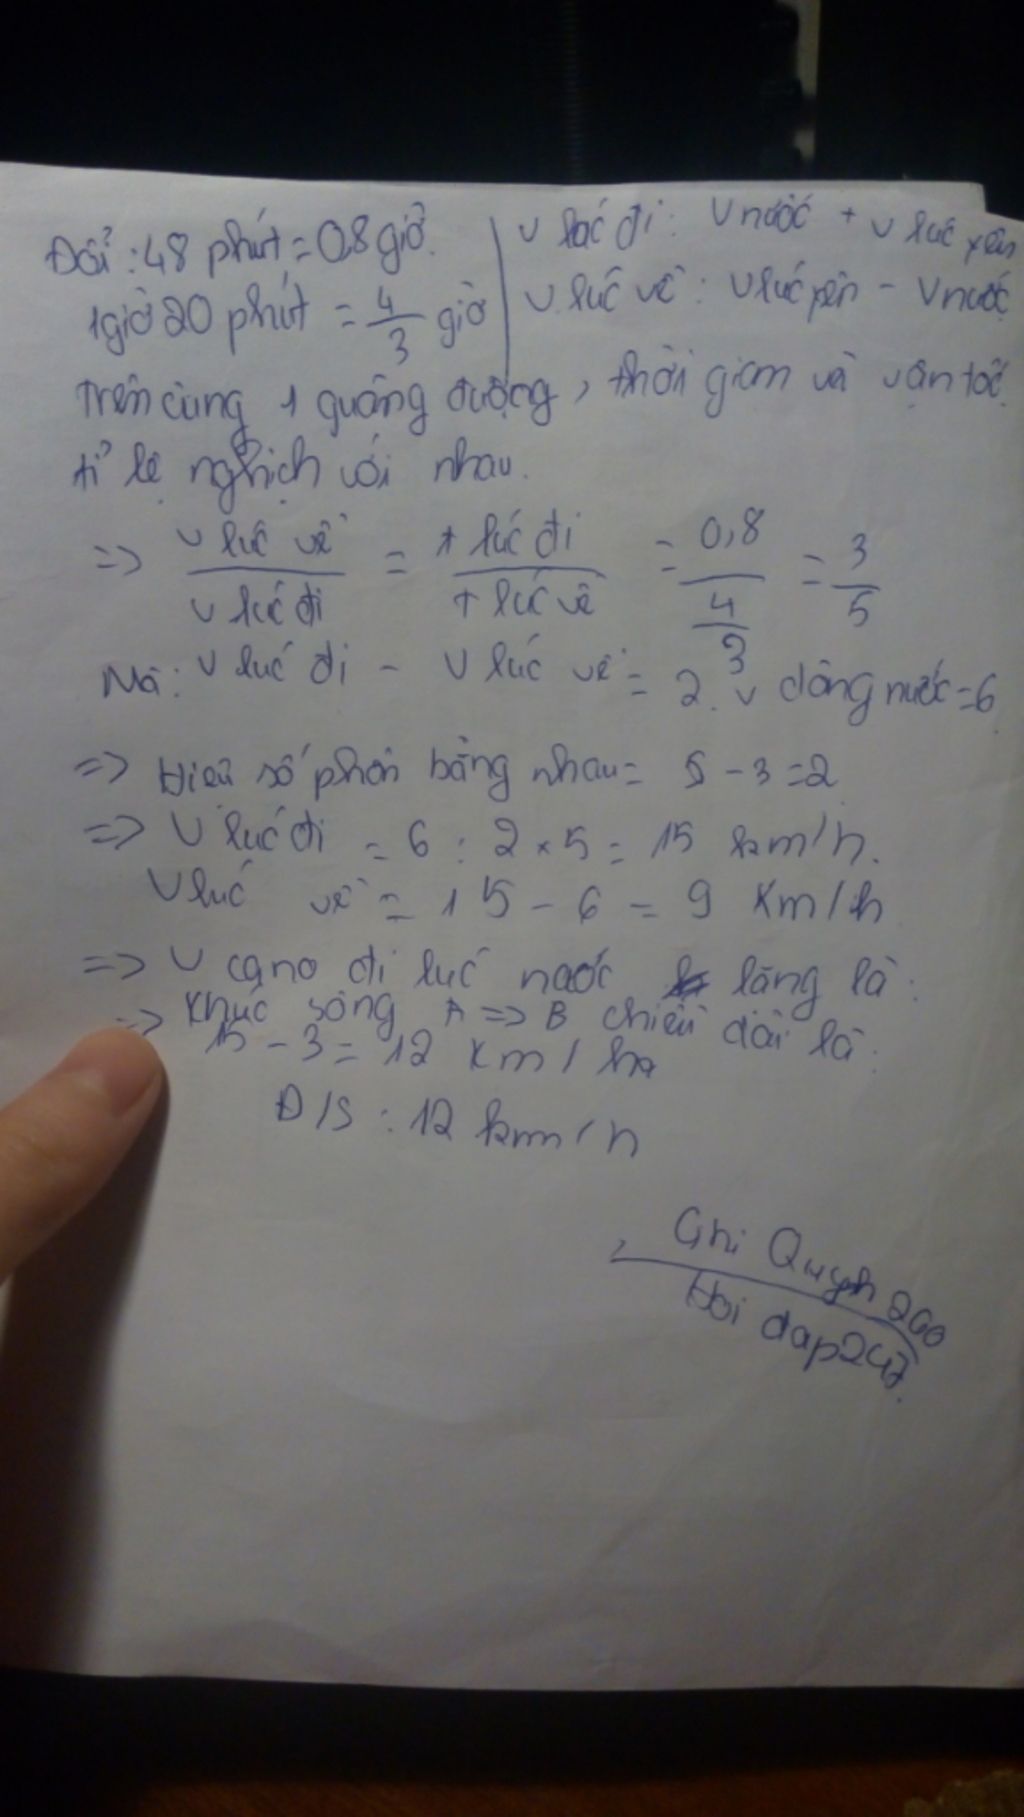 Đổi: 48 phút = 0,8 giờ.
1giờ 20 phút = 4/3 giờ
v lúc đi: v nước + v lúc yên
v lúc về: v lúc yên - v nước
Trên cùng 1 quãng đường, thời gian và vận tốc
tỉ lệ nghịch với nhau.
=> v lúc về / v lúc đi = t lúc đi / t lúc về = 0,8 / 4/3 = 3/5
Mà: v lúc đi - v lúc về = 2. v dòng nước = 6
=> Hiệu số phần bằng nhau = 5 - 3 = 2
=> v lúc đi = 6 : 2 × 5 = 15 km/h.
v lúc về = 15 - 6 = 9 Km/h
=> v cano đi lúc nước lặng là:
=> Khúc sông A => B chiều dài là:
15 - 3 = 12 Km/h
Đ/S: 12 km/h
Ghi Quynh
Hoi dap247.